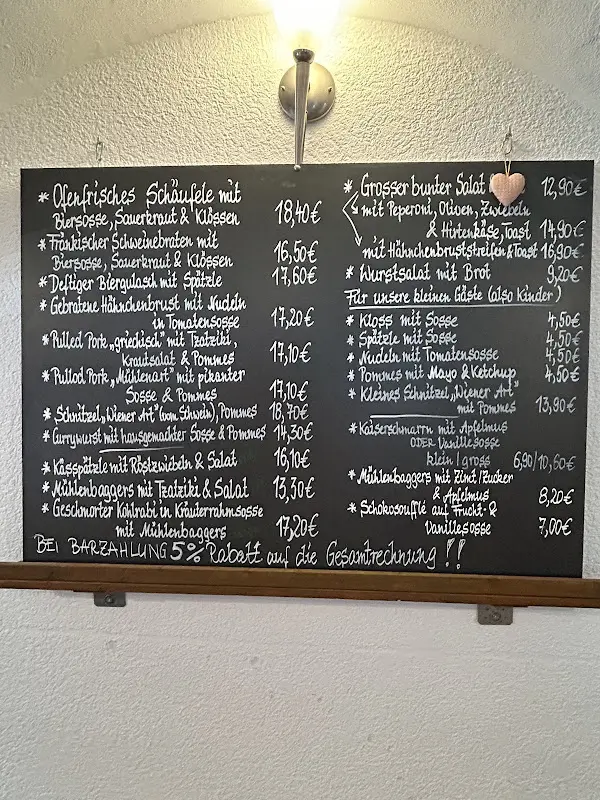 * Ofenfrisches Schäufele mit
Biersosse, Sauerkraut & Klössen 18,40€
* Fränkischer Schweinebraten mit
Biersosse, Sauerkraut & Klössen 16,50€
* Deftiger Biergulasch mit Spätzle 17,60€
* Gebratene Hähnchenbrust mit Nudeln
in Tomatensosse 17,20€
* Pulled Pork „griechisch" mit Tzatziki,
Krautsalat & Pommes 17,10€
* Pulled Pork „Mühlenart" mit pikanter
Sosse & Pommes 17,10€
* Schnitzel „Wiener Art" (vom Schwein), Pommes 18,70€
* Currywurst mit hausgemachter Sosse & Pommes 14,30€
* Kässpätzle mit Röstzwiebeln & Salat 16,10€
* Mühlenbaggers mit Tzatziki & Salat 13,30€
* Geschmorter Kohlrabi in Kräuterrahmsosse
mit Mühlenbaggers 17,20€
* Grosser bunter Salat 12,90€
mit Peperoni, Oliven, Zwiebeln
& Hirtenkäse, Toast 14,90€
mit Hähnchenbruststreifen & Toast 16,90€
* Wurstsalat mit Brot 9,20€
Für unsere kleinen Gäste (also Kinder)
* Kloss mit Sosse 4,50€
* Spätzle mit Sosse 4,50€
* Nudeln mit Tomatensosse 4,50€
* Pommes mit Mayo & Ketchup 4,50€
* Kleines Schnitzel „Wiener Art"
mit Pommes 13,90€
* Kaiserschmarrn mit Apfelmus
ODER Vanillesosse
klein / gross 6,90/10,60€
* Mühlenbaggers mit Zimt/Zucker
& Apfelmus 8,20€
* Schokosoufflé auf Frucht- &
Vanillesosse 7,00€
BEI BARZAHLUNG 5% Rabatt auf die Gesamtrechnung !!